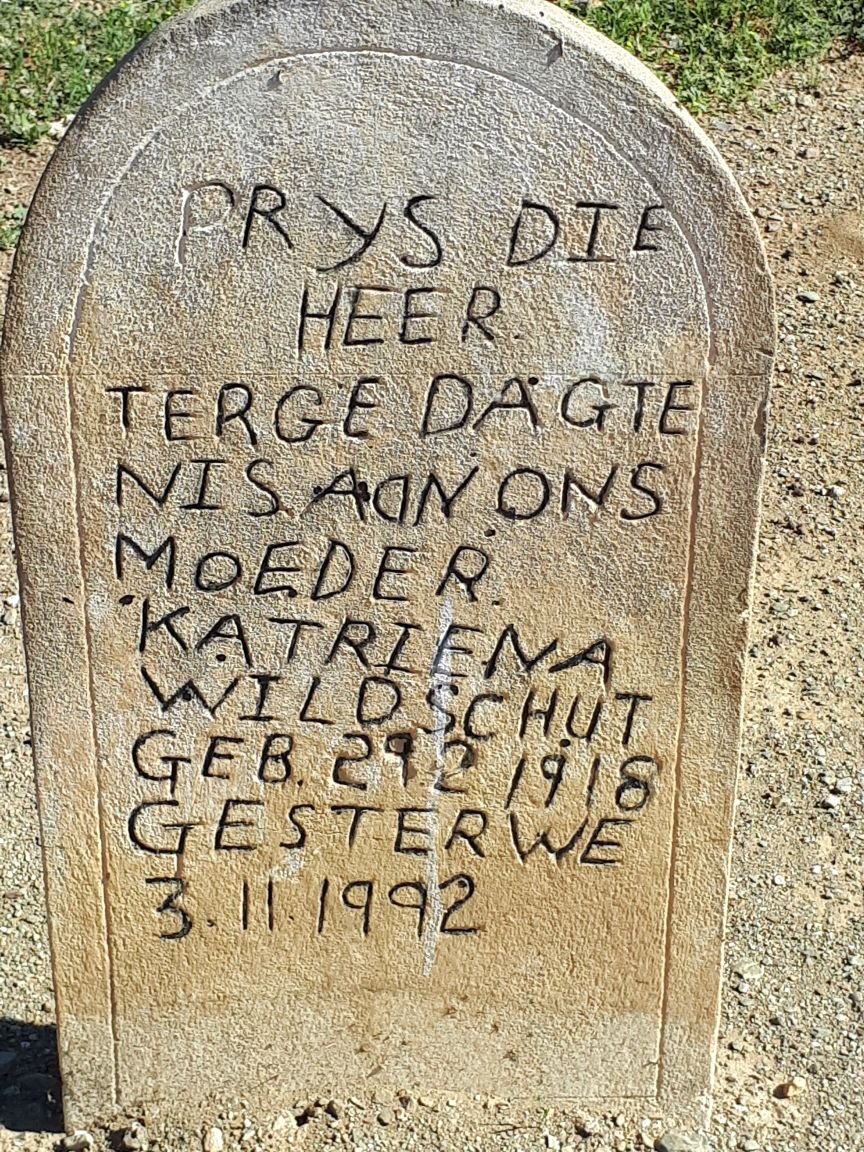 PRYS DIE
HEER.
TERGE DAGTE
NIS AAN ONS
MOEDER.
KATRIENA
WILDSCHUT
GEB. 292 1918
GESTERWE
3.11.1992